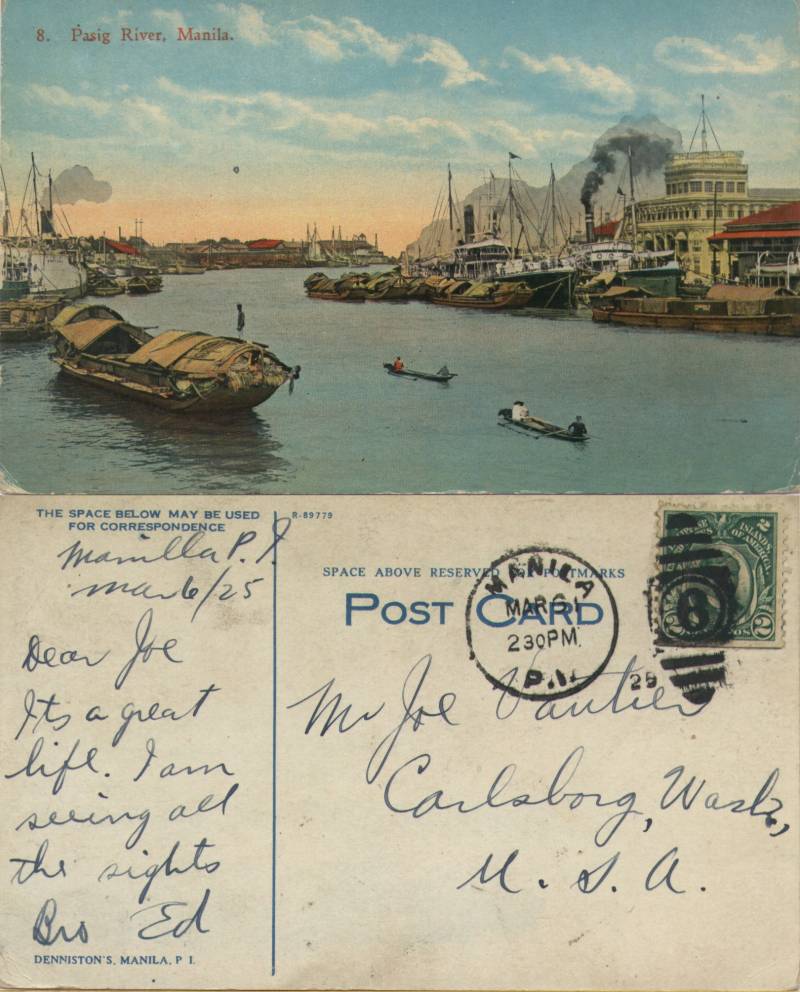 8. Pasig River, Manila.
THE SPACE BELOW MAY BE USED
FOR CORRESPONDENCE
R-89779
Manilla P. I.
Mar 6/25
Dear Joe
Its a great
life. I am
seeing all
the sights
Bro Ed
DENNISTON'S, MANILA, P. I.
SPACE ABOVE RESERVED FOR POSTMARKS
POST CARD
MANILA
MAR 6
2 30 PM.
P.I.
25
8
ISLANDS
OF AMERICA
2
2
Mr Joe Vautier
Carlsborg, Wash,
U. S. A.